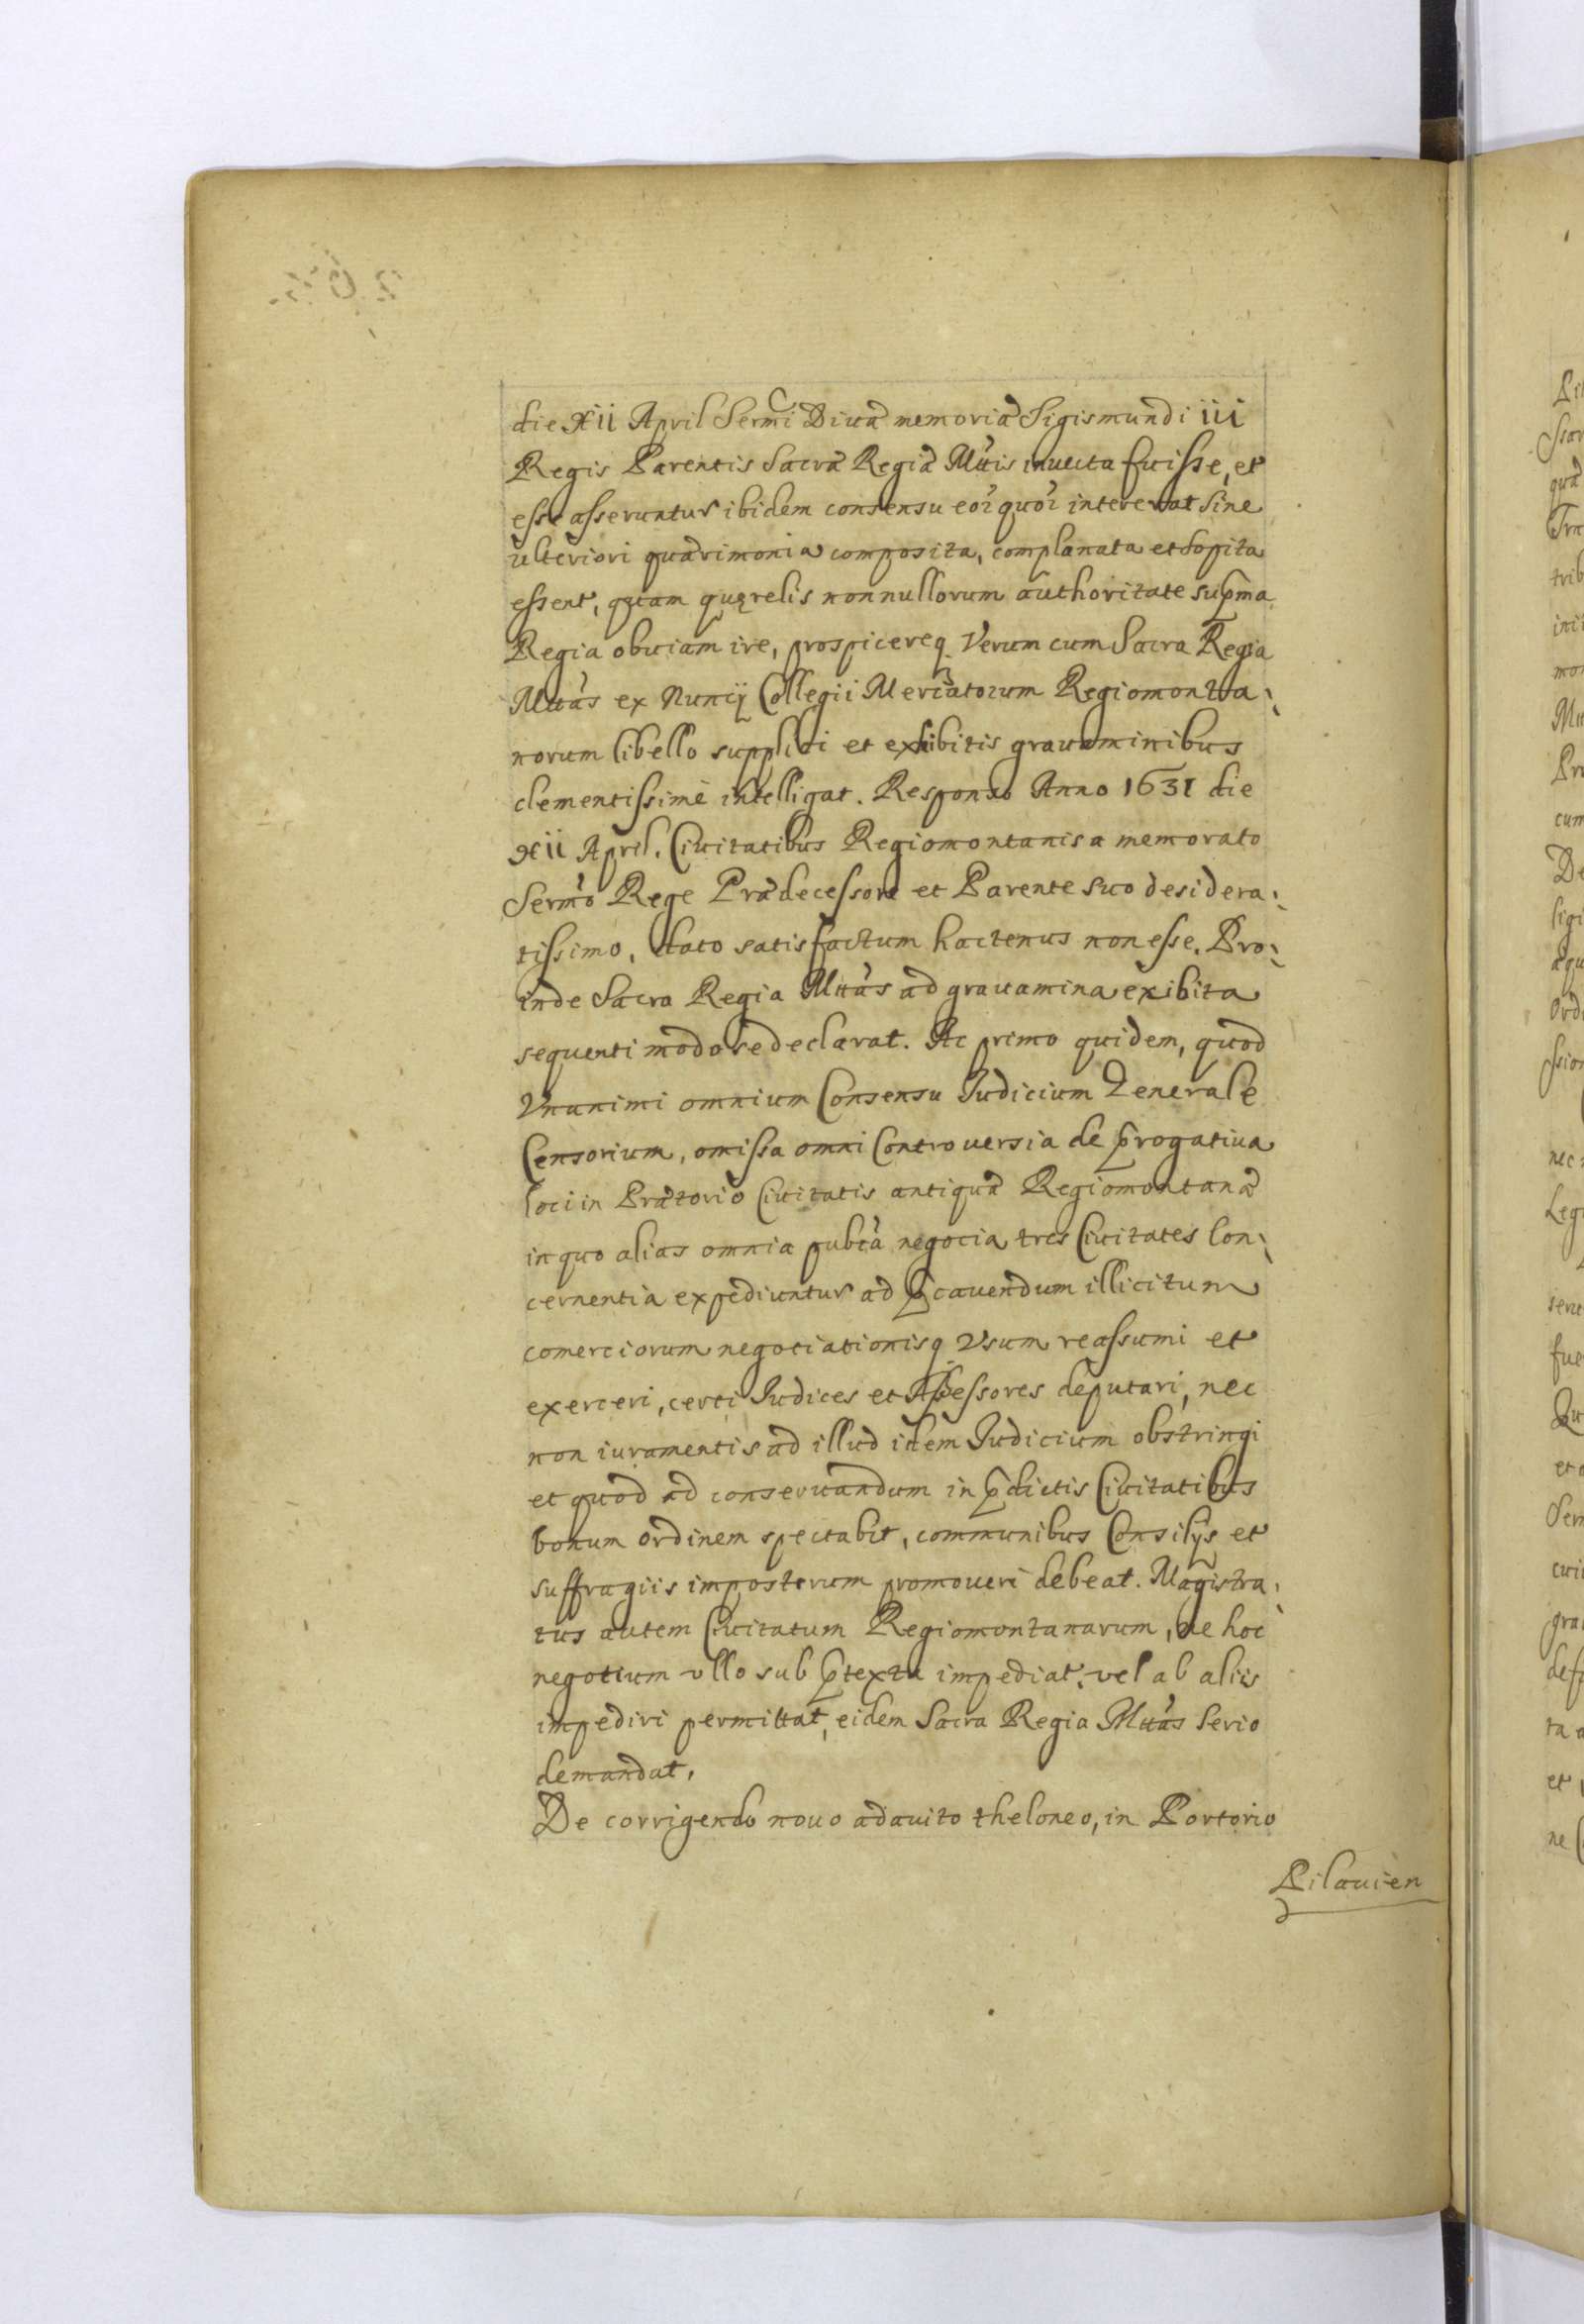 die Xii April Sermi Divæ memoriæ Sigismundi iii
Regis Parentis Sacræ Regiæ Mttis invecta fuisse, et
esse asseruntur ibidem consensu eoꝝ quoꝝ intererat sine
ulteriori quærimonia composita, complanata et sopita
essent, quam querelis nonnullorum authoritate supma
Regia obviam ire, prospicereq. Verum cum Sacra Regia
Mttas ex Nuncij Collegii Mercatorum Regiomonta:
norum libello supplici et exhibitis gravaminibus
clementissimè intelligat. Responso Anno 1631 die
Xii April. Civitatibus Regiomontanis a memorato
Sermo Rege Prædecessore et Parente suo desidera:
tissimo, dato satisfactum hactenus non esse. Pro:
inde Sacra Regia Mttas ad gravamina exibita
sequenti modo se declarat. Ac primo quidem, quod
Unanimi omnium Consensu Iudicium Generale
Censorium, omissa omni Controversia de progativa
loci in Prætorio Civitatis antiquæ Regiomontanæ
in quo alias omnia pubca negocia tres Civitates con:
cernentia expediuntur ad pcavendum illicitum
comerciorum negotiationisq Usum reassumi et
exerceri, certi Iudices et Assessores deputari, nec
non iuramentis ad illud idem Iudicium obstringi
et quod ad conservandum in pdictis Civitatibus
bonum ordinem spectabit, communibus Consilijs et
suffragiis imposterum promoveri debeat. Magistra:
tus autem Civitatum Regiomontanarum, ne hoc
negotium ullo sub ptextu impediat, vel ab aliis
impediri permittat, eidem Sacra Regia Mttas serio
demandat.
De corrigendo novo adaucto theloneo, in Portorio
Pilavien